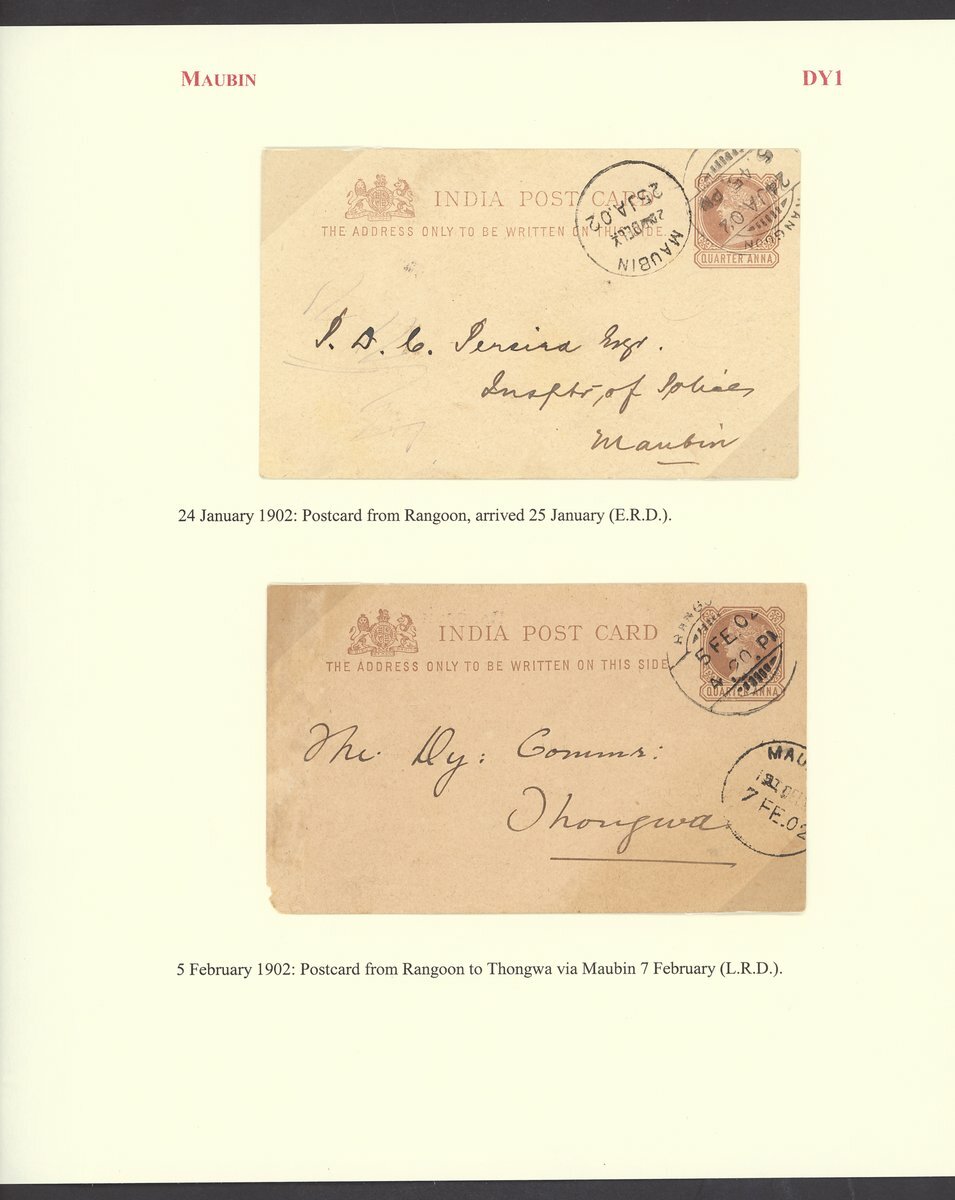 MAUBIN
DY1
INDIA POST CARD
THE ADDRESS ONLY TO BE WRITTEN ON THIS SIDE.
MAUBIN
25 JA.02
RANGOON
24 JA.02
QUARTER ANNA
P. D. C. Pereira Esqr.
Insptr of Police
Maubin
24 January 1902: Postcard from Rangoon, arrived 25 January (E.R.D.).
INDIA POST CARD
THE ADDRESS ONLY TO BE WRITTEN ON THIS SIDE
RANGO
5 FE.02
QUARTER ANNA
MAU
7 FE.02
The Dy: Commr:
Thongwa
5 February 1902: Postcard from Rangoon to Thongwa via Maubin 7 February (L.R.D.).